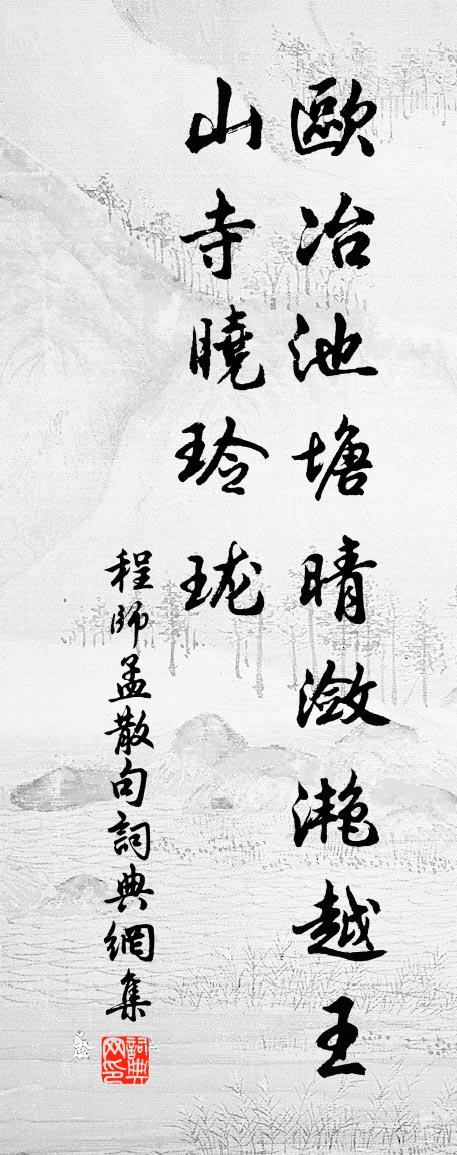 歐冶池塘晴瀲灧越王
山寺曉玲珑
程師孟散句詞典網集
詞典网